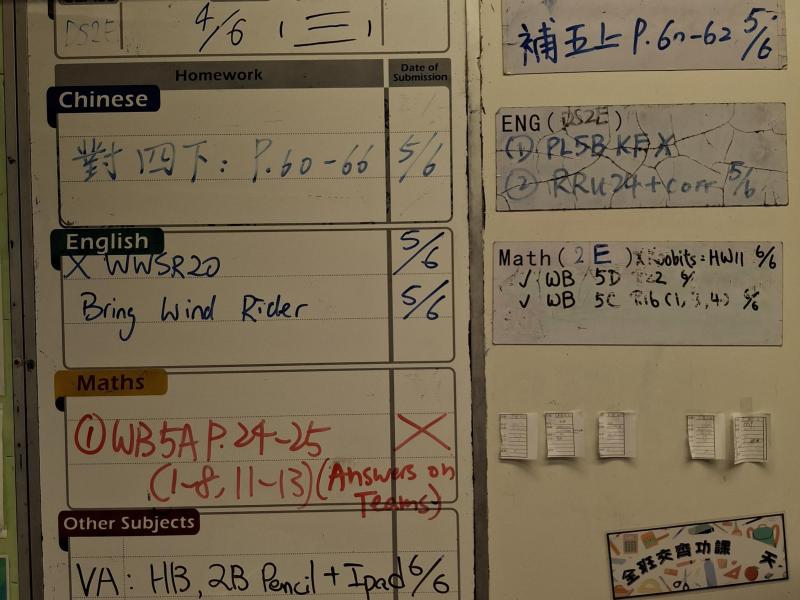 DS2E 4/6 (三)
Homework Date of Submission
Chinese
對四下: P.60-66 5/6
English
X WWSR20 5/6
Bring Wind Rider 5/6
Maths
① WB5A P.24-25 X
(1-8, 11-13) (Answers on Teams)
Other Subjects
VA: HB, 2B Pencil + Ipad 6/6
補五上 P.60-62 5/6
ENG (DS2E)
① PL5B KF X
② RRU24+corr 5/6
Math (2E) HW11 6/6
✓ WB 5D
✓ WB 5C
全班交齊功課 天